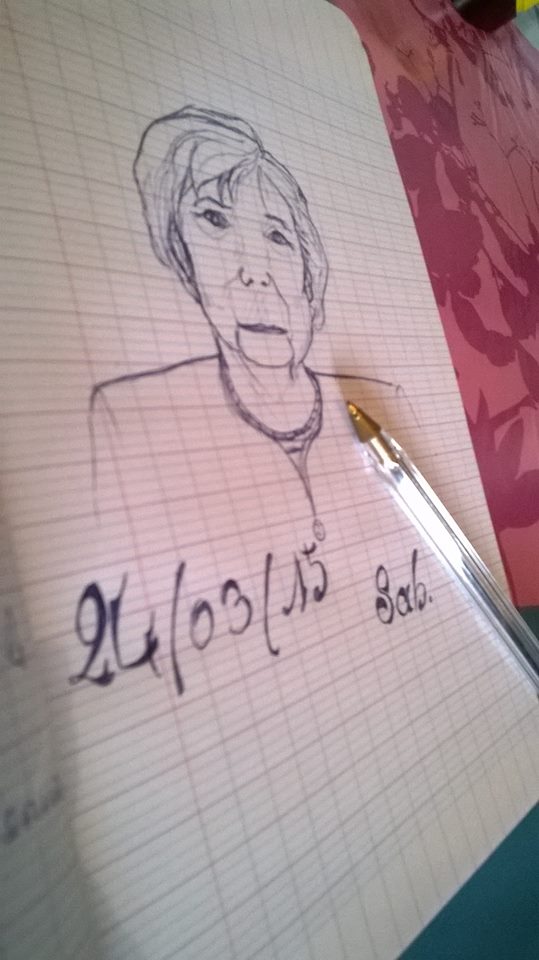 24/03/15 Sab.